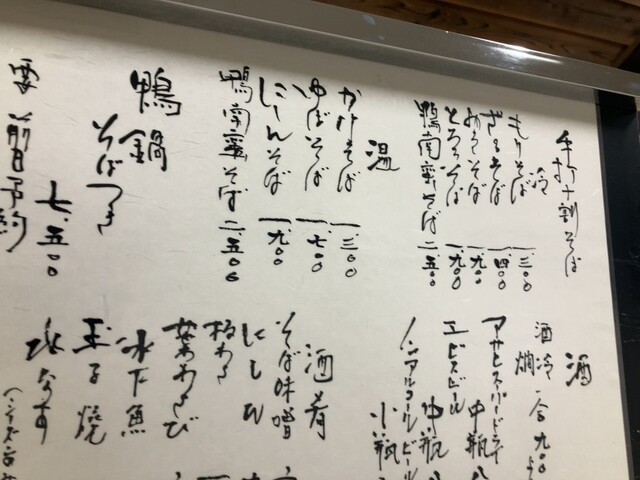 手打十割そば
冷
もりそば 一、三〇〇
ざるそば 一、四〇〇
おろしそば 一、九〇〇
とろろそば 一、九〇〇
鴨南蛮そば 二、五〇〇
温
かけそば 一、三〇〇
ゆばそば 一、七〇〇
にしんそば 一、九〇〇
鴨南蛮そば 二、五〇〇
鴨鍋
そばつき
七、五〇〇
要前日予約
酒
酒 冷 燗 一合 九〇〇
アサヒスーパードライ 中瓶 八
エビスビール 中瓶 八
ノンアルコールビール 小瓶
酒肴
そば味噌
にしん
板わさ
水下魚
玉子焼
水なす